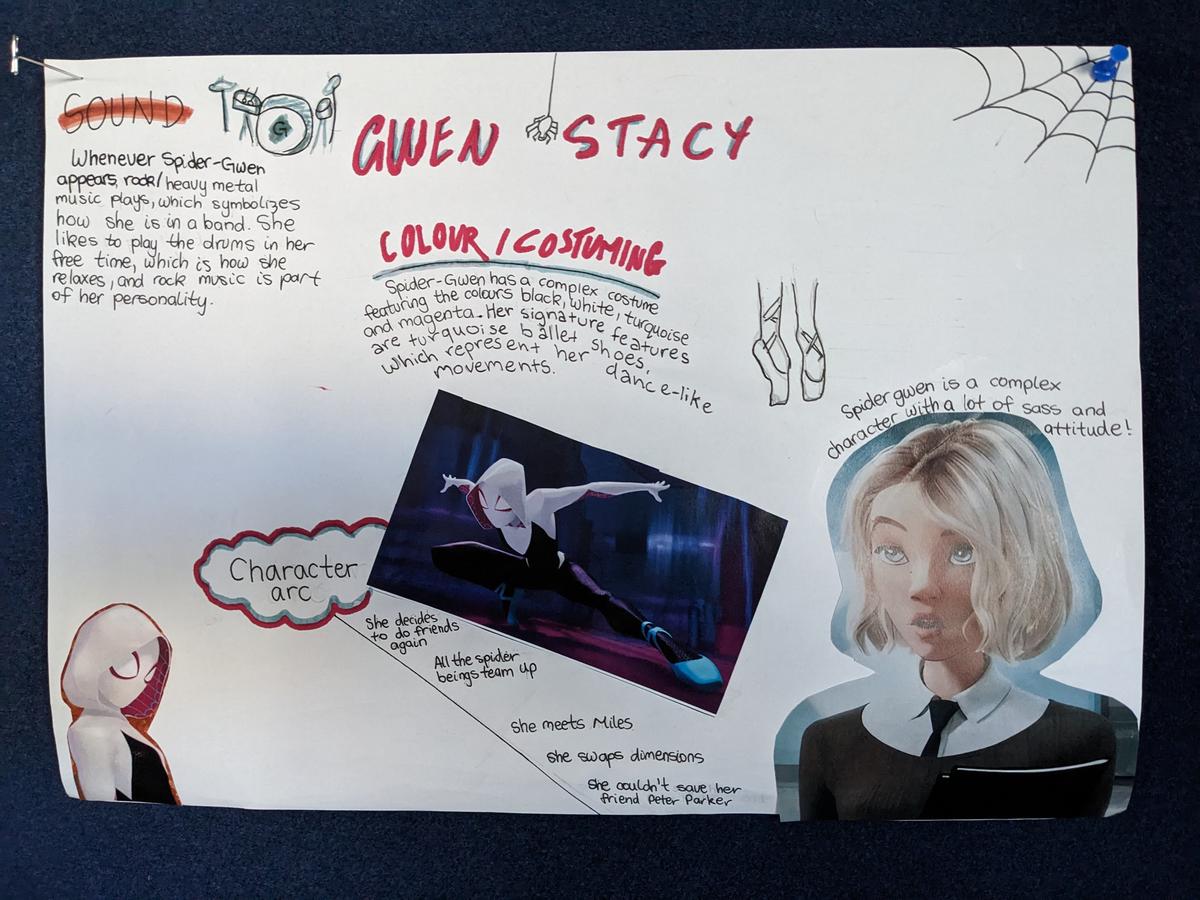 SOUND
G
Whenever Spider-Gwen
appears, rock/heavy metal
music plays, which symbolizes
how she is in a band. She
likes to play the drums in her
free time, which is how she
relaxes, and rock music is part
of her personality.
GWEN STACY
COLOUR / COSTUMING
Spider-Gwen has a complex costume
featuring the colours black, white, turquoise
and magenta. Her signature features
are turquoise ballet shoes,
which represent her dance-like
movements.
Spider gwen is a complex
character with a lot of sass and
attitude!
Character
arc
She decides
to do friends
again
All the spider
beings team up
she meets Miles
she swaps dimensions
she couldn't save her
friend Peter Parker